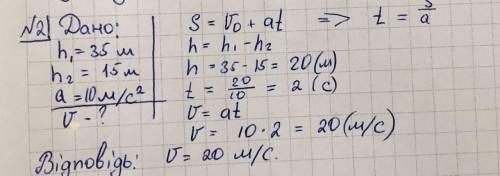 №2 Дано:
h₁ = 35 м
h₂ = 15 м
a = 10 м/с²
v - ?
S = v₀ + at => t = s/a
h = h₁ - h₂
h = 35 - 15 = 20 (м)
t = 20/10 = 2 (с)
v = at
v = 10 · 2 = 20 (м/с)
Відповідь: v = 20 м/с.